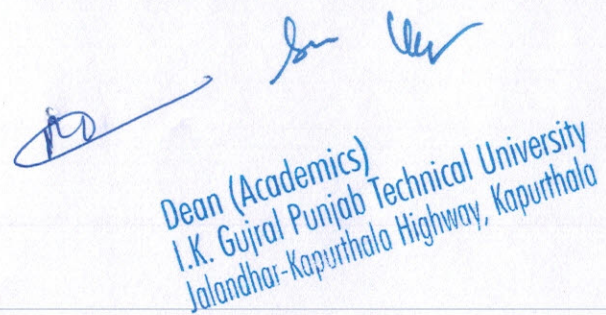 Dean (Academics)
I.K. Gujral Punjab Technical University
Jalandhar-Kapurthala Highway, Kapurthala